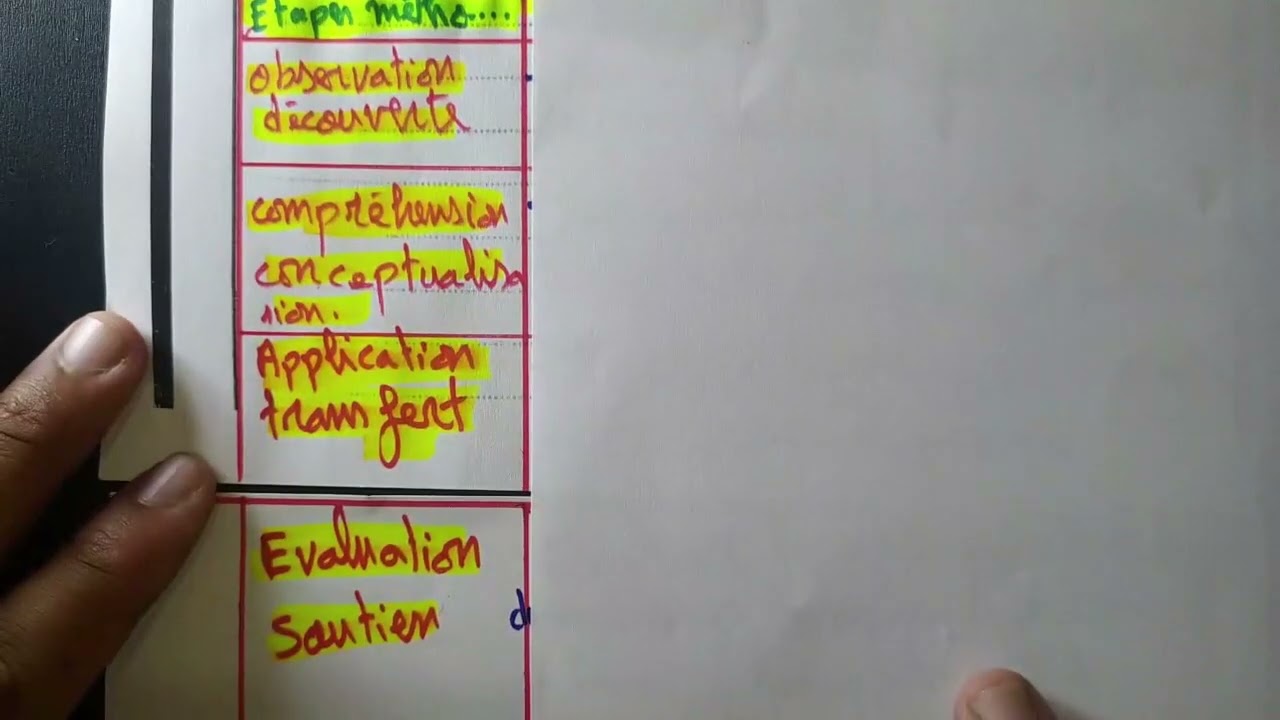 Etapes métho....
observation
découverte
compréhension
conceptualisa
tion.
Application
transfert
Evaluation
Soutien
d